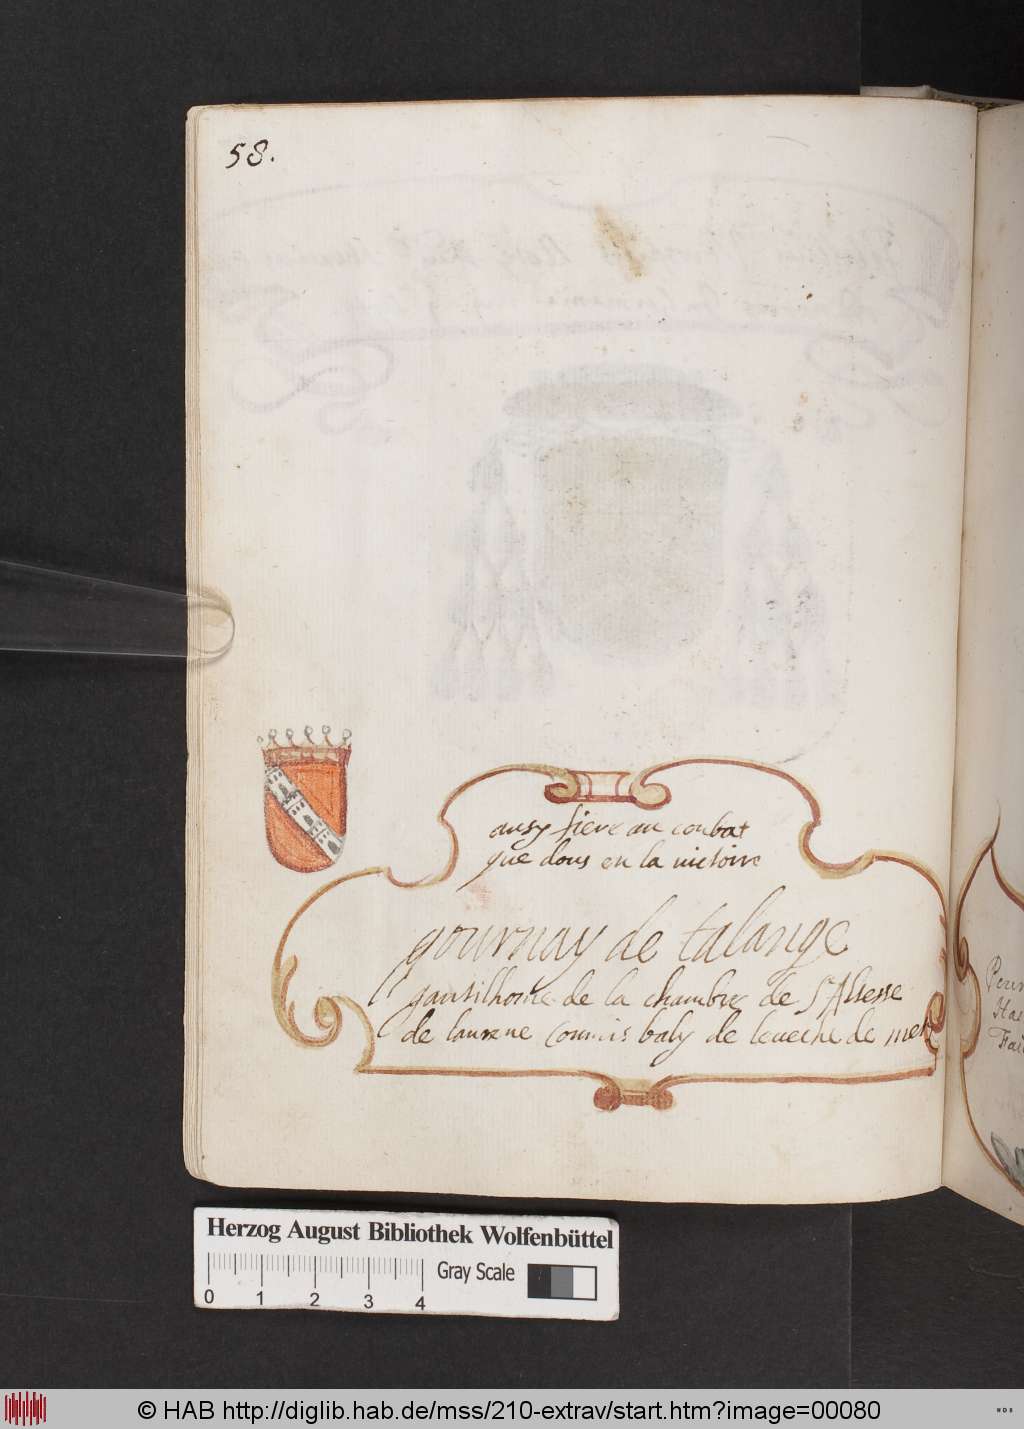 58.
ausy fiere au conbat
que dous en la victoire
gournay de talange
gantilhome de la chambre de S Altesse
de lauraine Commis baly de leueche de mets
Herzog August Bibliothek Wolfenbüttel
Gray Scale
0 1 2 3 4
© HAB http://diglib.hab.de/mss/210-extrav/start.htm?image=00080